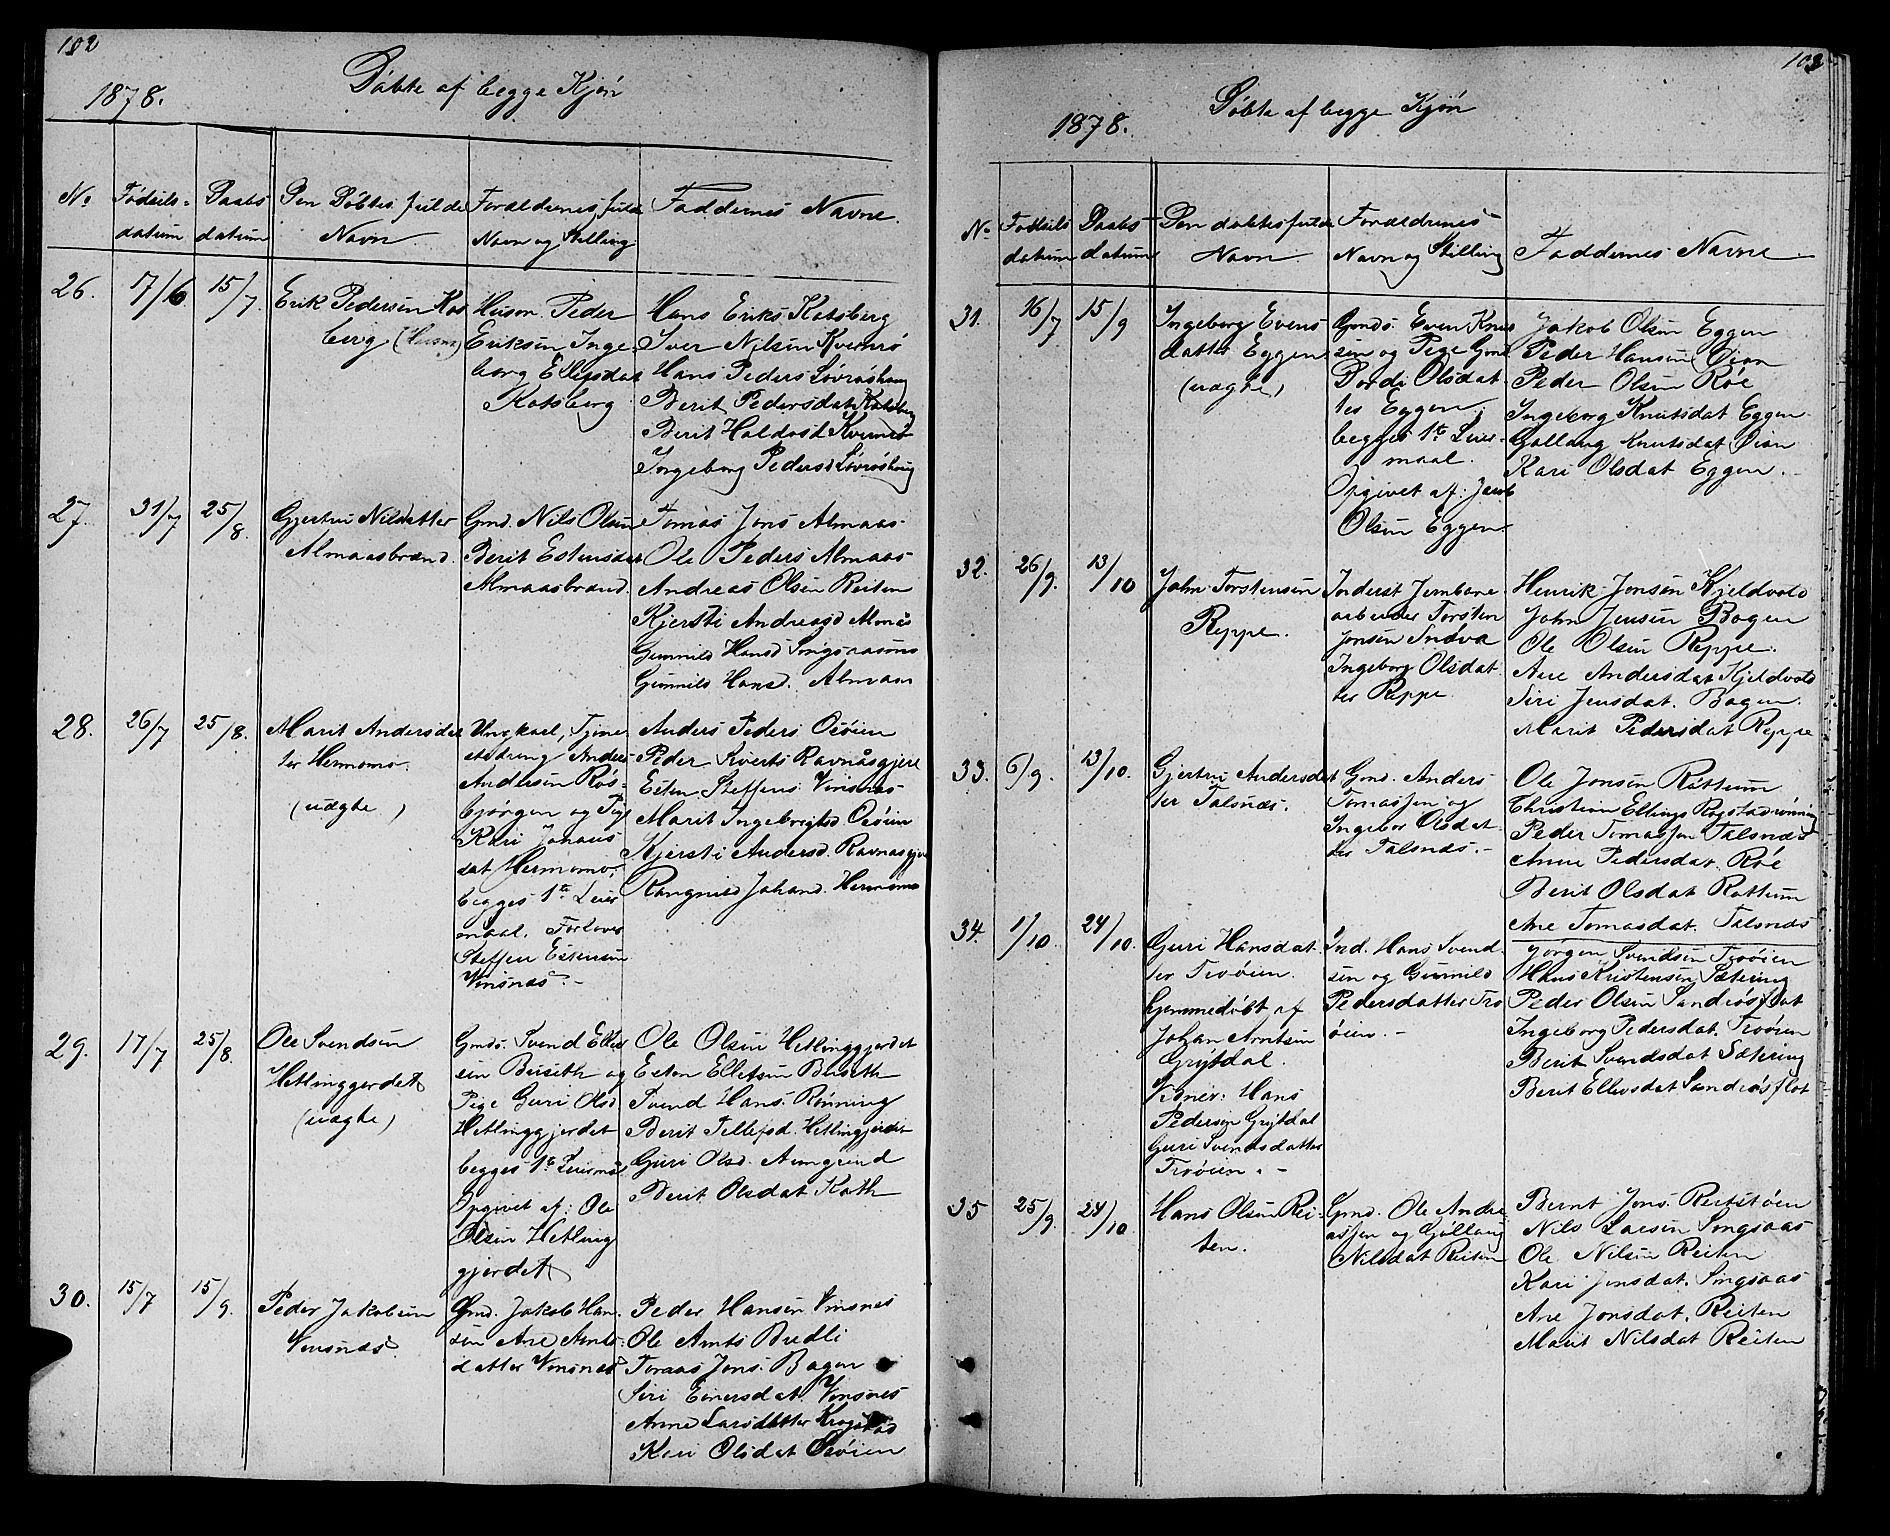 102
1878.
Døbte af begge Kjøn
No
Fødsels-
datum
Daabs
datum
Den Døbtes fulde
Navn.
Forældrenes fulde
Navn og Stilling
Faddernes Navne.
26.
17/6
15/7.
Erik Pedersen Kos
berg (Husm)
Husm. Peder
Eriksen Inge-
borg Ellefsdat
Kotsberg
Hans Eriks. Kotsberg
Iver Nilsen Kvernrø
Hans Peders Løvrøshaug
Berit Pedersdat. Kotsberg
Berit Haldosd Kvernrø
Ingeborg Pedersd Løvrøshaug
27.
31/7
25/8.
Gjertru Nilsdatter
Almaasbrænd.
Gmd. Nils Olsen
Berit Estensdat
Almaasbrænd.
Tomas Jons Almaas-
Ole Peders Almaas-
Andreas Olsen Reiten
Kjersti Andreasd Almås
Gunnild Hansd Singsaasmo
Gunnild Hansd. Almaas
28.
26/7
25/8.
Marit Andersdat
ter Hermomo.
(uægte)
Ungkarl, Tjene
stedreng Anders
Andersen Røs-
bjørgen og Pige
Kari Johans
dat Hermomo.
begges 1te Leier
maal. Forlover
Steffen Estensen
Vinsnæs. -
Anders Peders Osøien
Peder Sivérts Ravnåsgjere
Esten Steffens Vinsnæs-
Marit Ingebrigtsd Osøien
Kjersti Andersd. Ravnasgjer
Rangnild Johansd. Hermomo
29.
17/7
25/8.
Ole Svendsen
Hetlinggerdet
(uægte)
Gmds. Svend Ellef
sen Buseth og
Pige Guri Olsd
Hetlinggjerdet
begges 1te Leiermaal
Opgivet af: Ole
Olsen Hetling
gjerdet
Ole Olsen Hetlinggjerdet
Esten Ellefsen Buseth
Svend Hans. Rønning
Berit Tellefsd. Hetlingjerdet
Guri Olsd. Aungrind
Berit Olsdat Koth
30.
15/7
15/9.
Peder Jakobsen
Vinsnæs.
Gmd. Jakob Han-
sen Ane Arnts-
datter Vinsnæs
Peder Hansen Vinsnes
Ole Arnts Bredli
Tomas Jons. Bogen
Siri Einersdat. Vinsnes
Anne Larsdatter Krogstad
Kari Olsdat Osøien
103
1878.
Døbte af begge Kjøn
No
Fødsels
datum
Daabs-
datum
Den døbtes fulde
Navn
Forældrenes
Navn og Stilling
Faddernes Navne.
31.
16/7
15/9
Ingeborg Evens
datter Eggen
(uægte)
Gmds. Even Knut
sen og Pige Gmd
Dordi Olsdat-
ter Eggen,
begges 1te Leier-
maal.
Opgivet af: Jacob
Olsen Eggen
Jakob Olsen Eggen
Peder Hansen Øian
Peder Olsen Røe
Ingeborg Knutsdat Eggen
Gollaug Knutsdat Øian
Kari Olsdat Eggen. -
32.
26/9.
13/10
John Torstensen
Reppe.
Inderst Jernbane
arbeider Torsten
Jonsen Indva
Ingeborg Olsdat
ter Reppe
Henrik Jonsen Kjeldvold
John Jensen Bogen
Ole Olsen Reppe.
Ane Andersdat Kjeldvold
Siri Jensdat. Bogen.
Marit Pedersdat Reppe
33.
6/9.
13/10.
Gjertru Andersdat
ter Talsnæs.
Gmd. Anders
Tomassen og
Ingebor Olsdat.
ter Talsnæs. -
Ole Jonsen Røttum
Christian Ellings Rogstadrønning
Peder Tomassen Talsnæs
Anne Pedersdat. Røe
Berit Olsdat Rottum
Ane Tomasdat. Talsnæs
34.
1/10.
24/10.
Guri Hansdat-
ter Trøøien.
hjemmedøbt af
Johan Arntsen
Grytdal
Vidner: Hans
Pedersen Grytdal
Guri Svendsdatter
Trøøien. -
Ind. Hans Svend
sen og Gunnild
Pedersdatter Trø
øien. -
Jørgen Svendsen Trøøien
Hans Kristensen Sætering
Peder Olsen Sandrøsflot
Ingeborg Pedersdat. Trøøien
Berit Svendsdat Sætering
Berit Ellevsdat Sandrøsflot
35
25/9.
24/10.
Hans Olsen Rei-
ten.
Gmd. Ole Andre
assen og Gjøllaug
Nilsdat Reiten
Bernt Jons. Reitstøien
Nils Larsen Singsaas
Ole Nilsen Reiten
Kari Jonsdat. Singsaas
Ane Jonsdat. Reiten
Marit Nilsdat Reiten